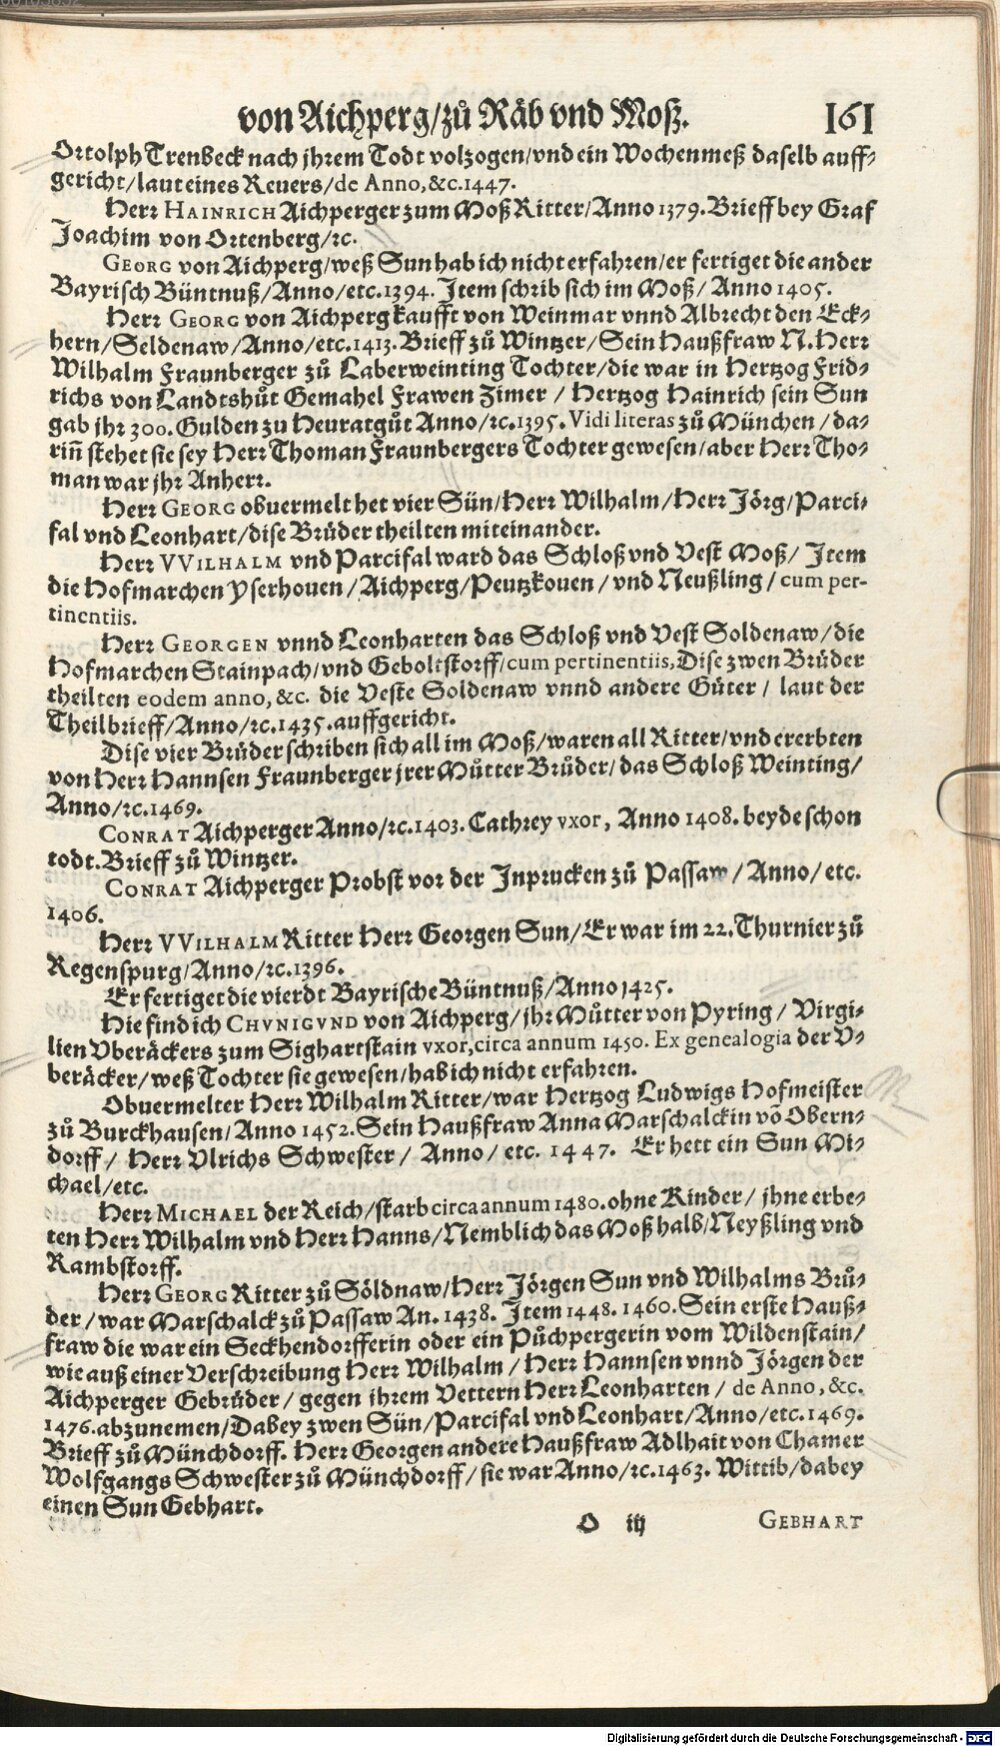 von Aichperg/zů Räb vnd Moß. 161
Ortolph Trenbeck nach jhrem Todt volzogen/vnd ein Wochenmeß daselb auff-
gericht/laut eines Reuers/de Anno,&c.1447.
Herr HAINRICH Aichperger zum Moß Ritter/Anno 1379. Brieff bey Graf
Joachim von Ortenberg/ꝛc.
GEORG von Aichperg/weß Sun hab ich nicht erfahren/er fertiget die ander
Bayrisch Büntnuß/Anno/etc.1394. Item schrib sich im Moß/ Anno 1405.
Herr GEORG von Aichperg kaufft von Weinmar vnnd Albrecht den Eck-
hern/Seldenaw/Anno/etc.1413. Brieff zů Wintzer/Sein Haußfraw N. Herr
Wilhalm Fraunberger zů Laberweinting Tochter/die war in Hertzog Frid-
richs von Landtshůt Gemahel Frawen Zimer / Hertzog Hainrich sein Sun
gab jhr 300. Gulden zu Heuratgůt Anno/ꝛc.1395. Vidi literas zů München / da-
riñ stehet sie sey Herr Thoman Fraunbergers Tochter gewesen/aber Herr Tho-
man war jhr Anherr.
Herr GEORG obuermelt het vier Sün/Herr Wilhalm/Herr Jörg/Parci-
fal vnd Leonhart/dise Brüder theilten miteinander.
Herr VVILHALM vnd Parcifal ward das Schloß vnd Vest Moß/ Item
die Hofmarchen Yserhouen/Aichperg/Peutzkouen/vnd Neußling/cum per-
tinentiis.
Herr GEORGEN vnnd Leonharten das Schloß vnd Vest Soldenaw/die
Hofmarchen Stainpach/vnd Geboltstorff/cum pertinentiis, Dise zwen Brüder
theilten eodem anno, &c. die Veste Soldenaw vnnd andere Güter / laut der
Theilbrieff/Anno/ꝛc.1435.auffgericht.
Dise vier Brüder schriben sich all im Moß/waren all Ritter/vnd ererbten
von Herr Hannsen Fraunberger jrer Mütter Brůder/das Schloß Weinting/
Anno/ꝛc.1469.
CONRAT Aichperger Anno/ꝛc.1403. Cathrey vxor, Anno 1408. beyde schon
todt. Brieff zů Wintzer.
CONRAT Aichperger Probst vor der Inprucken zů Passaw / Anno/ etc.
1406.
Herr VVILHALM Ritter Herr Georgen Sun/Er war im 22. Thurnier zů
Regenspurg/Anno/ꝛc.1396.
Er fertiget die vierdt Bayrische Büntnuß/Anno 1425.
Hie find ich CHVNIGVND von Aichperg/jhr Můtter von Pyring / Virgi-
lien Vberäckers zum Sighartstain vxor,circa annum 1450. Ex genealogia der V-
beräcker/weß Tochter sie gewesen/hab ich nicht erfahren.
Obuermelter Herr Wilhalm Ritter/war Hertzog Ludwigs Hofmeister
zů Burckhausen/Anno 1452. Sein Haußfraw Anna Marschalckin võ Obern-
dorff / Herr Vlrichs Schwester / Anno/ etc. 1447. Er hett ein Sun Mi-
chael/etc.
Herr MICHAEL der Reich/starb circa annum 1480. ohne Kinder / jhne erbe-
ten Herr Wilhalm vnd Herr Hanns/Nemblich das Moß halb/Neyßling vnd
Rambstorff.
Herr GEORG Ritter zů Söldnaw/Herr Jörgen Sun vnd Wilhalms Brů-
der/war Marschalck zů Passaw An. 1438. Item 1448. 1460. Sein erste Hauß-
fraw die war ein Seckhendorfferin oder ein Půchpergerin vom Wildenstain/
wie auß einer Verschreibung Herr Wilhalm / Herr Hannsen vnnd Jörgen der
Aichperger Gebrüder / gegen ihrem Vettern Herr Leonharten / de Anno, &c.
1476. abzunemen/Dabey zwen Sün/Parcifal vnd Leonhart/Anno/etc.1469.
Brieff zů Münchdorff. Herr Georgen andere Haußfraw Adlhait von Chamer
Wolfgangs Schwester zů Münchdorff/sie war Anno/ꝛc.1463. Wittib/dabey
einen Sun Gebhart.
O iij GEBHART
Digitalisierung gefördert durch die Deutsche Forschungsgemeinschaft - DFG